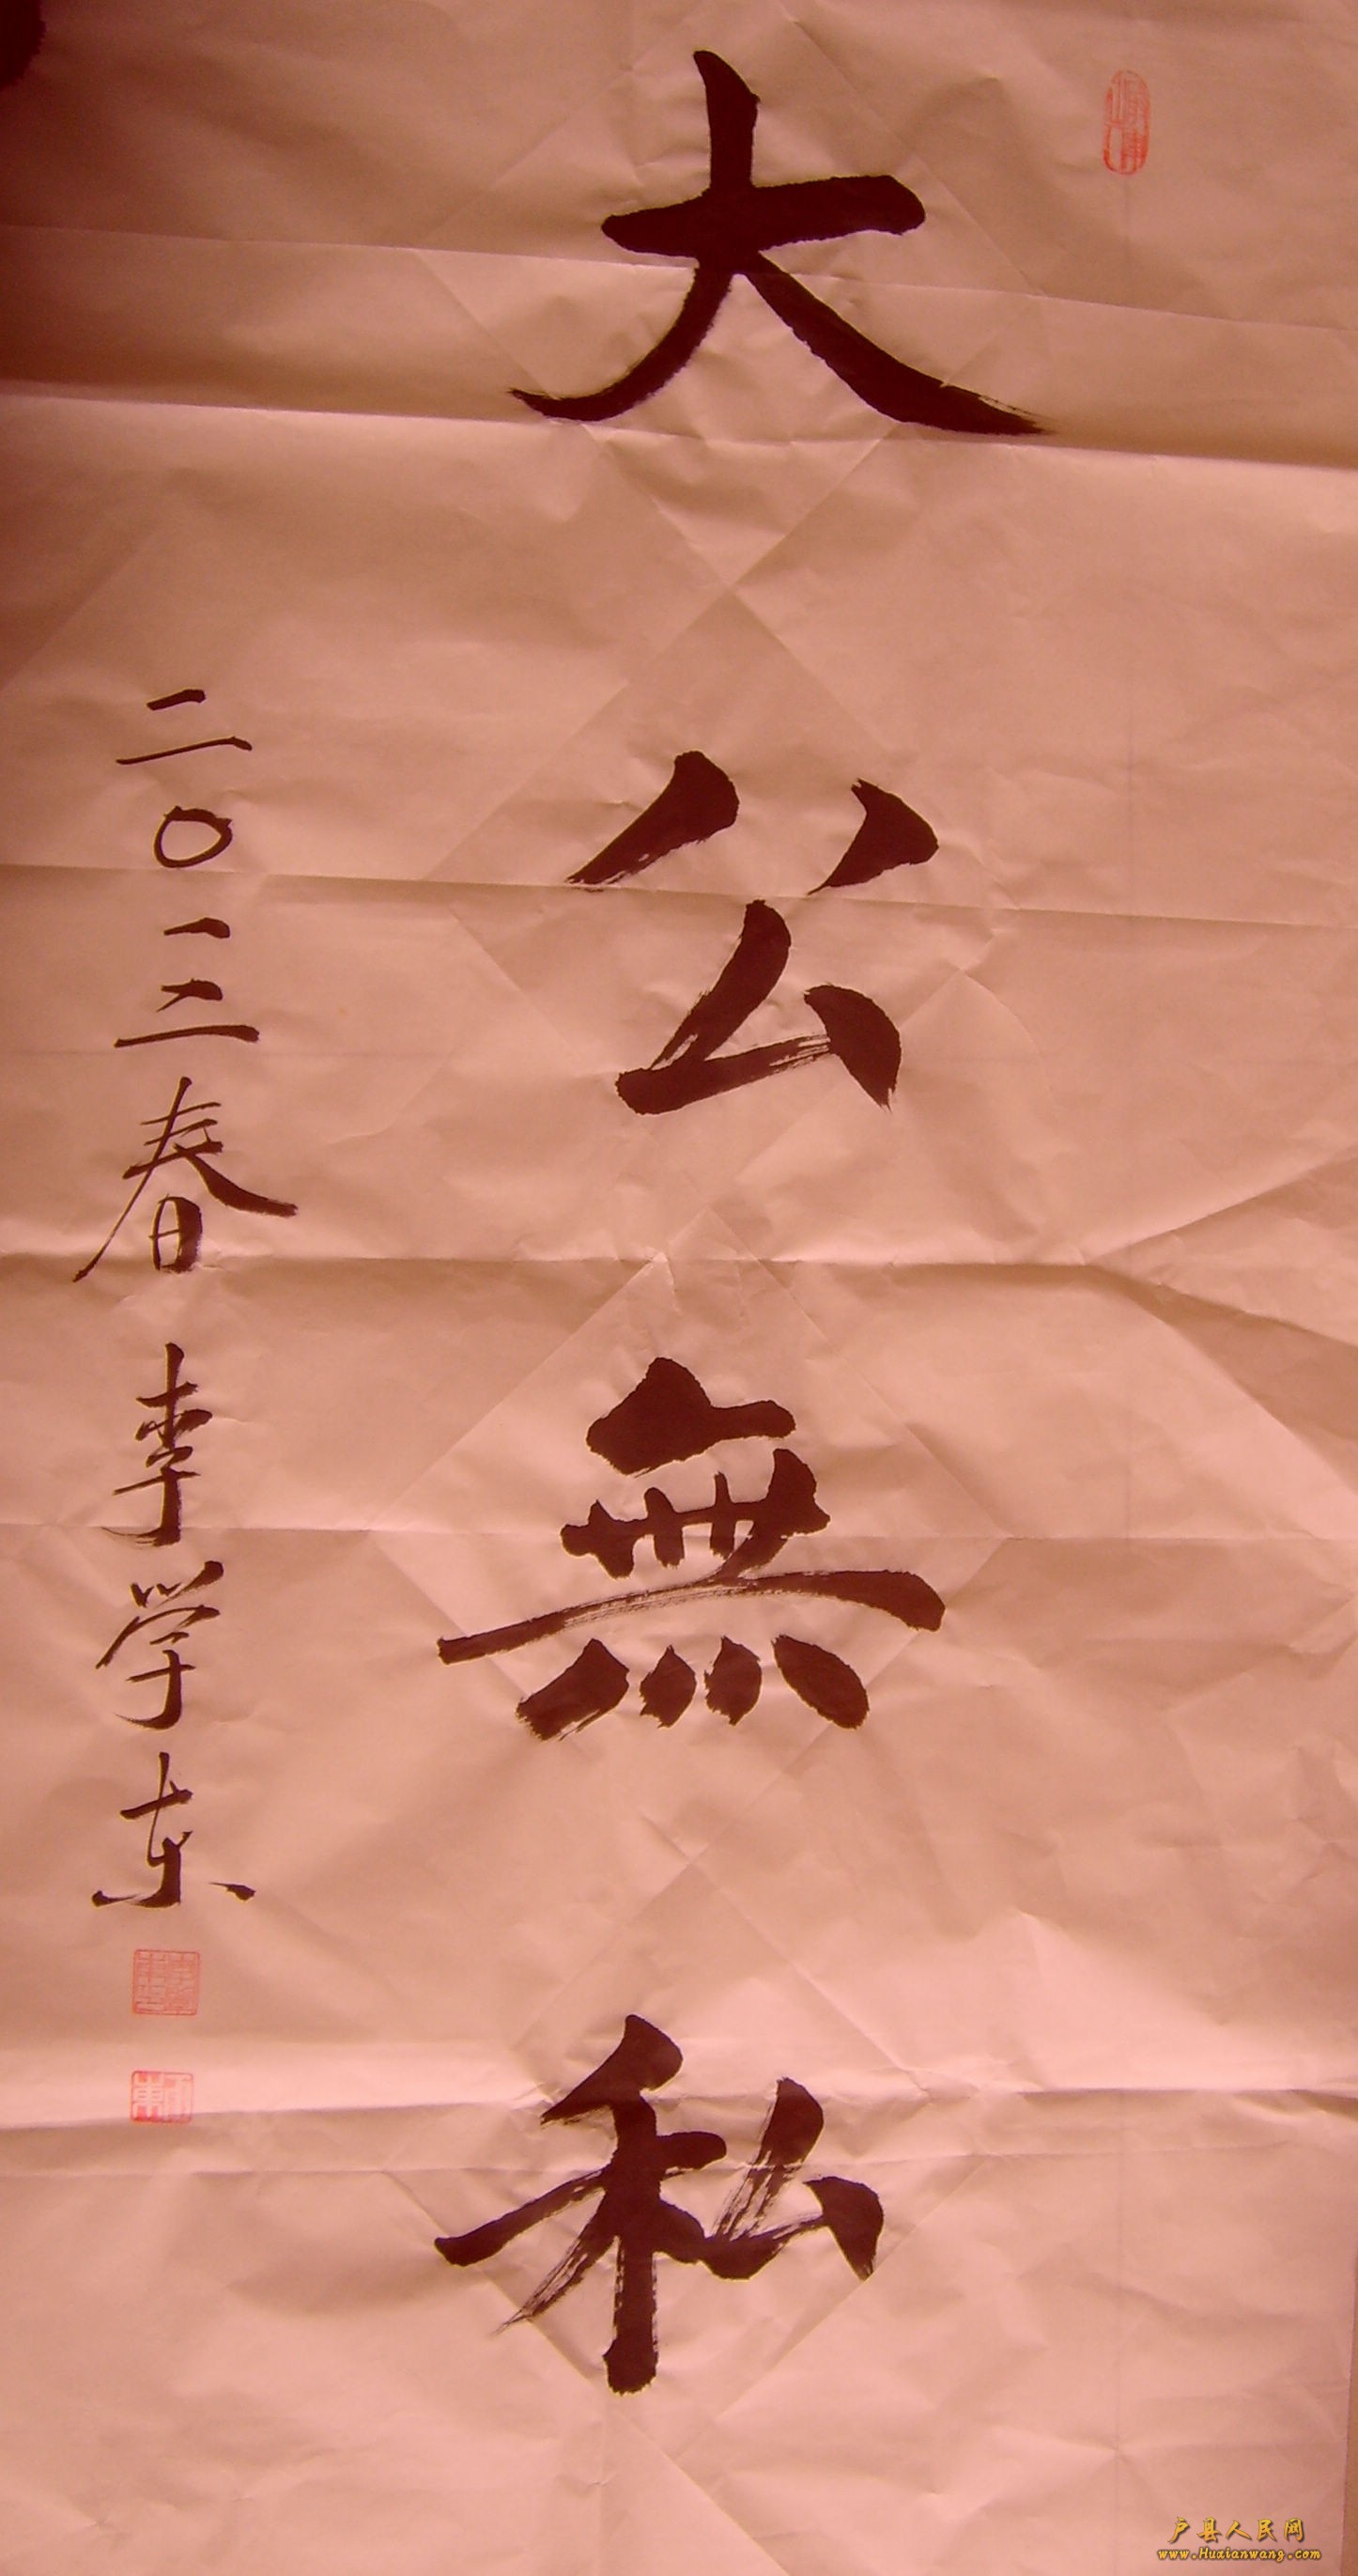 大公無私
二〇一二春 李学东
户县人民网
www.Huxianwang.com